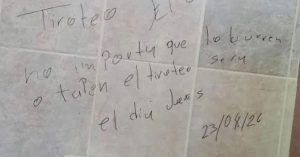 Tiroteo El
no importa que lo borren
o tapen el tiroteo sera
el dia
23/04/26